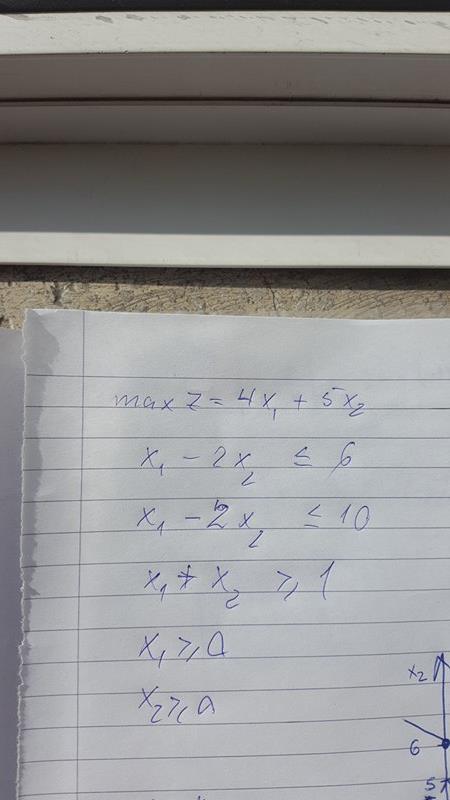 max z = 4x₁ + 5x₂
x₁ - 2x₂ ≤ 6
x₁ - 2x₂ ≤ 10
x₁ + x₂ ≥ 1
x₁ ≥ 0
x₂ ≥ 0
x₂
6
5